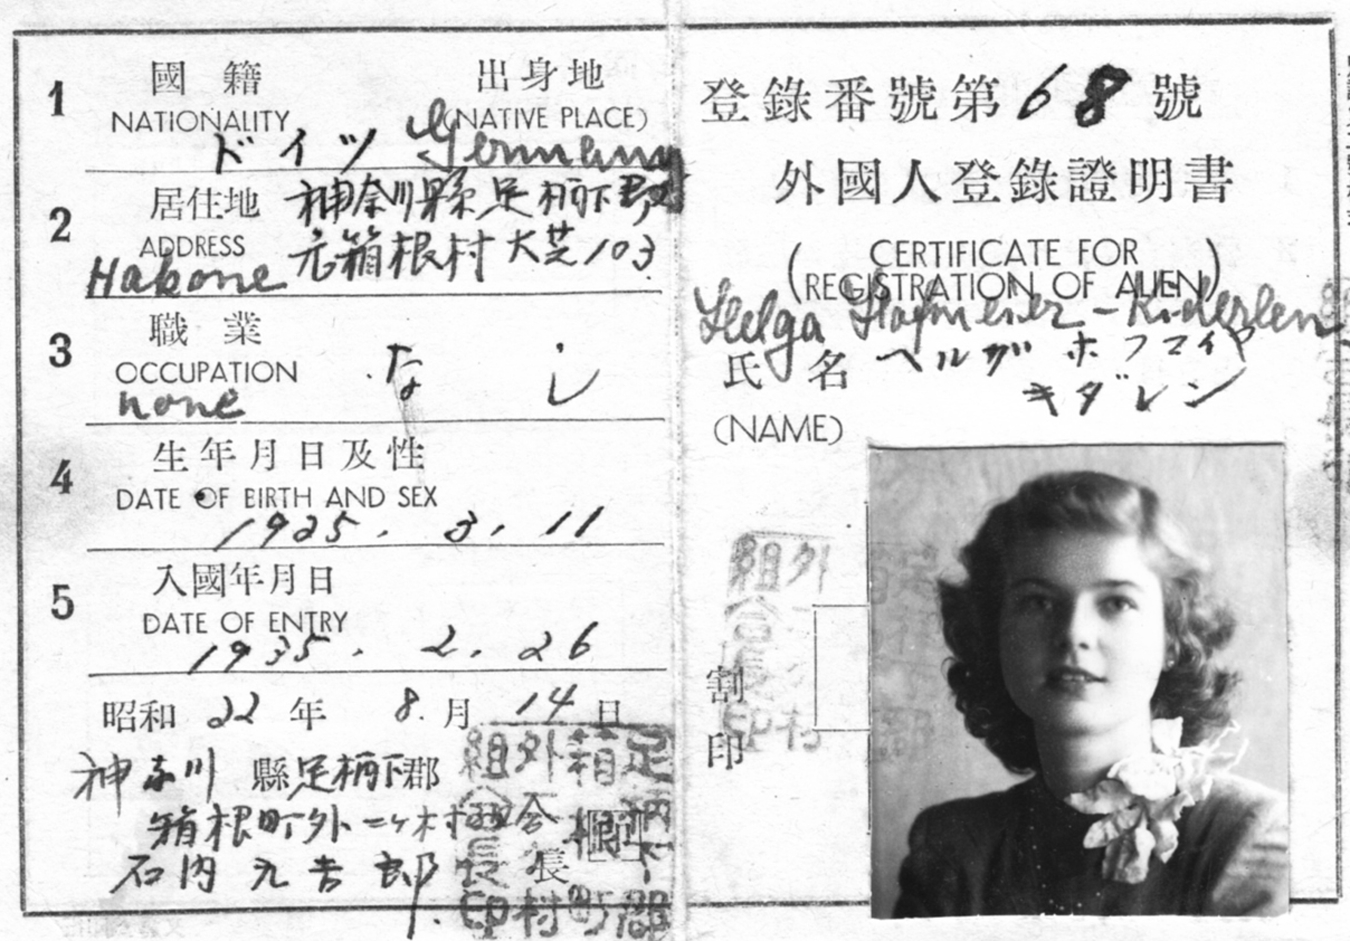 1 國籍 出身地
NATIONALITY (NATIVE PLACE)
ドイツ Germany
2 居住地 神奈川縣足柄下郡
ADDRESS 元箱根村大芝103
Hakone
3 職業
OCCUPATION なし
none
4 生年月日及性
DATE OF BIRTH AND SEX
1925. 3. 11
5 入國年月日
DATE OF ENTRY
1935. 2. 26
昭和22年8.月14日
神奈川縣足柄下郡
箱根町外二ヶ村組合長
石内九吉郎
足柄下郡
箱根町
外 村
組合長印
登錄番號第68號
外國人登錄證明書
(CERTIFICATE FOR
REGISTRATION OF ALIEN)
Helga Hofmeier-Kiderlen
氏名 ヘルガ ホフマイヤ
キダレン
(NAME)
外 村
組合長印
割印